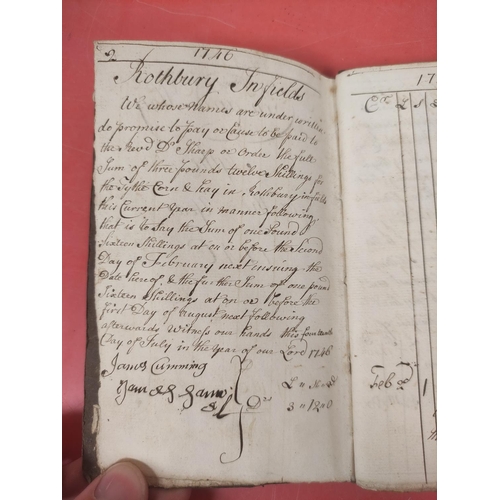 2 1746
Rothbury Infields
We whose Names are under written
do promise to pay or Cause to be paid to
the Revd Dr Sharp or Order the full
Sum of three pounds twelve Shillings for
the Tythe Corn & hay in Rothbury infields
this Current Year in manner following
that is to Say the Sum of one pound
Sixteen Shillings at on or before the Second
Day of February next insuing the
Date hereof, & the further Sum of one pound
Sixteen Shillings at on or before the
first Day of August next following
afterwards Witness our hands this fourteenth
Day of July in the Year of our Lord 1746
James Cumming
L S D
3 " 12 " 0
17
Cr L S
Feb